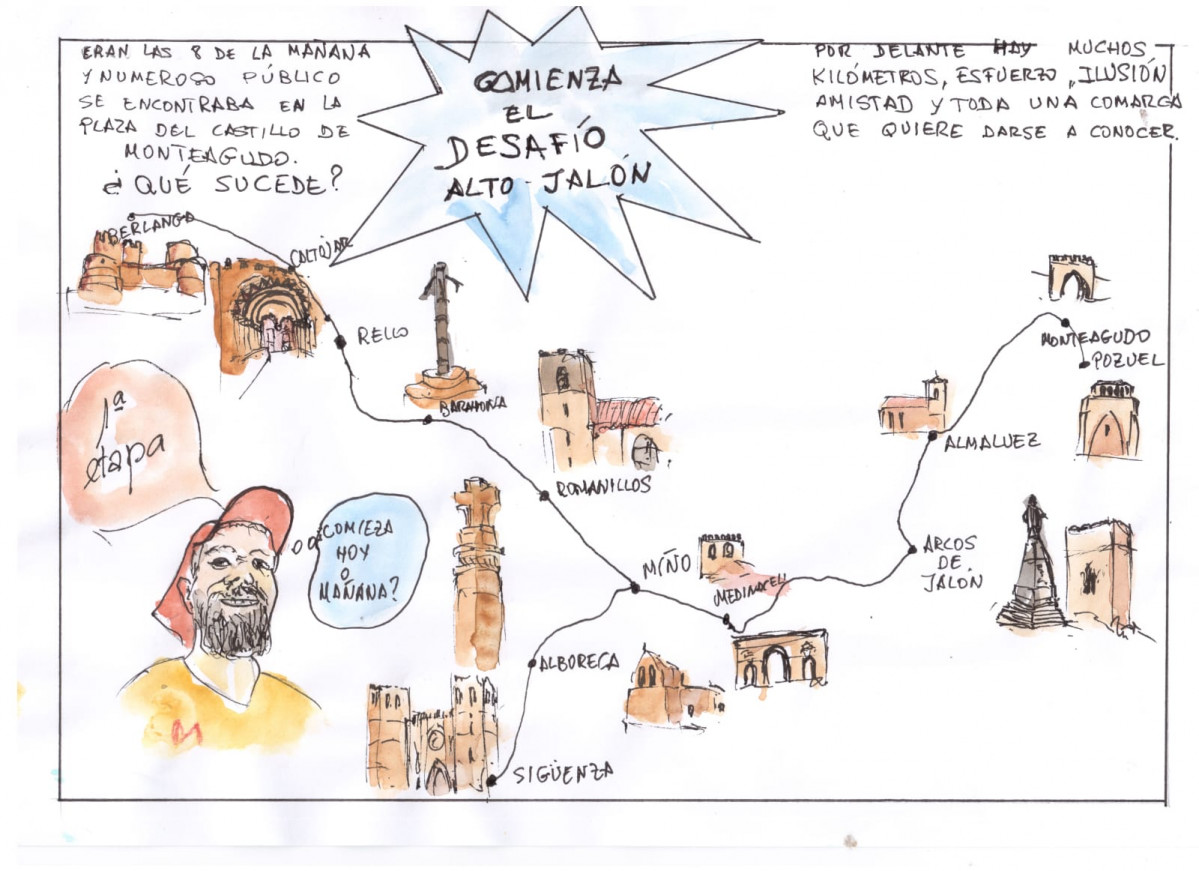 ERAN LAS 8 DE LA MAÑANA
Y NUMEROSO PÚBLICO
SE ENCONTRABA EN LA
PLAZA DEL CASTILLO DE
MONTEAGUDO.
¿QUÉ SUCEDE?
COMIENZA
EL
DESAFÍO
ALTO-JALÓN
POR DELANTE HAY MUCHOS
KILÓMETROS, ESFUERZO, ILUSIÓN
AMISTAD Y TODA UNA COMARCA
QUE QUIERE DARSE A CONOCER.
BERLANGA
CALTOJAR
RELLO
BARAHONA
ROMANILLOS
MIÑO
MEDINACELI
ALBORECA
SIGÜENZA
ARCOS
DE
JALÓN
ALMALUEZ
MONTEAGUDO
POZUEL
1ª
etapa
COMIEZA
HOY
O
MAÑANA?